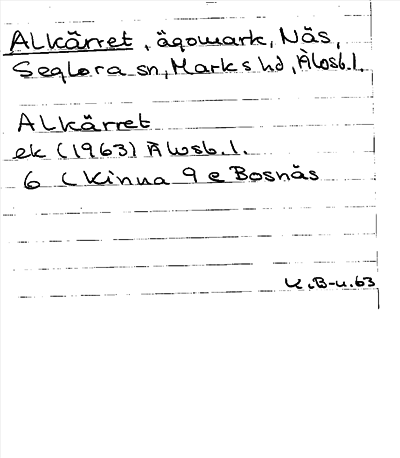 Alkärret, ägomark, Näs,
Seglora sn, Marks hd, Älvsb.l.
Alkärret
ek (1963) Älvsb.l.
6 ( Kinna 9 e Bosnäs
K.B-n.63